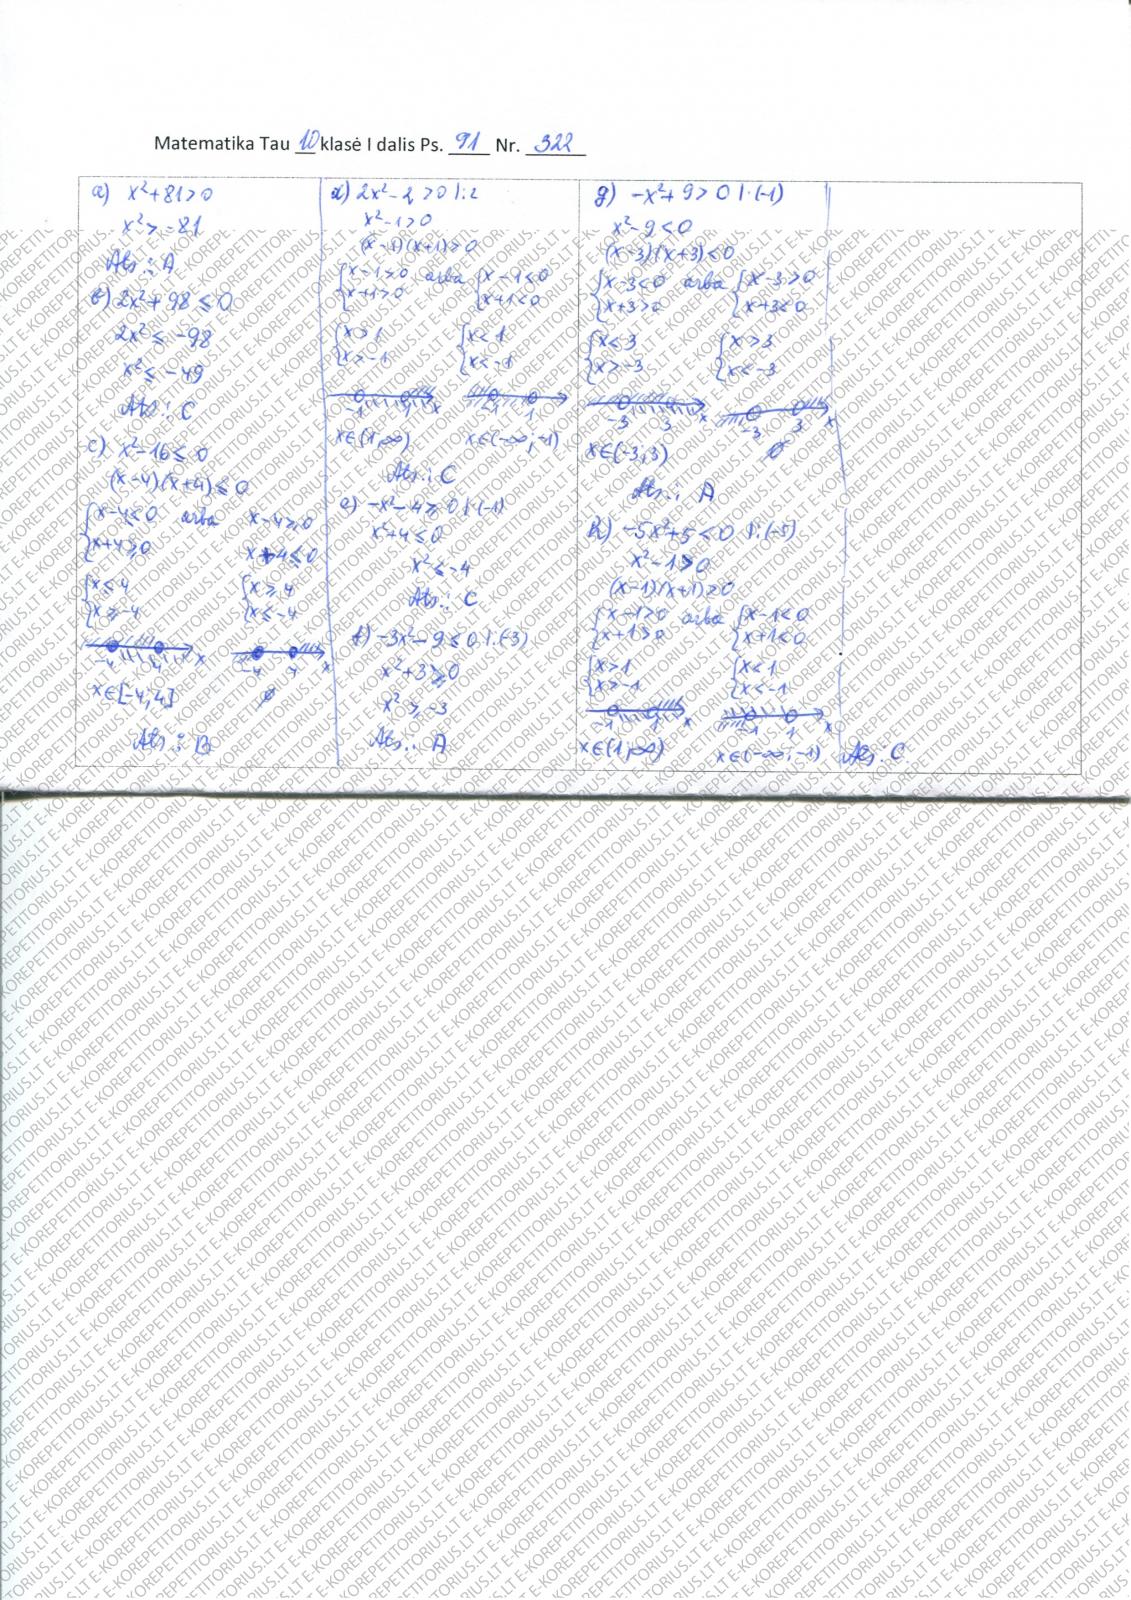 Matematika Tau 10 klasė I dalis Ps. 91 Nr. 322
a) x²+81>0
x²>-81
Ats.: A
b) 2x²+98≤0
2x²≤-98
x²≤-49
Ats.: C
c) x²-16≤0
(x-4)(x+4)≤0
{x-4≤0 arba x-4≥0
{x+4≥0 x+4≤0
{x≤4 {x≥4
{x≥-4 {x≤-4
-4 4 x -4 4 x
x∈[-4;4] ∅
Ats.: B
d) 2x²-2>0 |:2
x²-1>0
(x-1)(x+1)>0
{x-1>0 arba {x-1<0
{x+1>0 {x+1<0
{x>1 {x<1
{x>-1 {x<-1
-1 1 x -1 1 x
x∈(1;∞) x∈(-∞;-1)
Ats.: C
e) -x²-4≥0 |·(-1)
x²+4≤0
x²≤-4
Ats.: C
f) -3x²-9≤0 |:(-3)
x²+3≥0
x²≥-3
Ats.: A
g) -x²+9>0 |·(-1)
x²-9<0
(x-3)(x+3)<0
{x-3<0 arba {x-3>0
{x+3>0 {x+3<0
{x<3 {x>3
{x>-3 {x<-3
-3 3 x -3 3 x
x∈(-3;3) ∅
Ats.: A
h) -5x²+5<0 |:(-5)
x²-1>0
(x-1)(x+1)>0
{x-1>0 arba {x-1<0
{x+1>0 {x+1<0
{x>1 {x<1
{x>-1 {x<-1
-1 1 x -1 1 x
x∈(1;∞) x∈(-∞;-1) Ats.: C
E-KOREPETITORIUS.LT